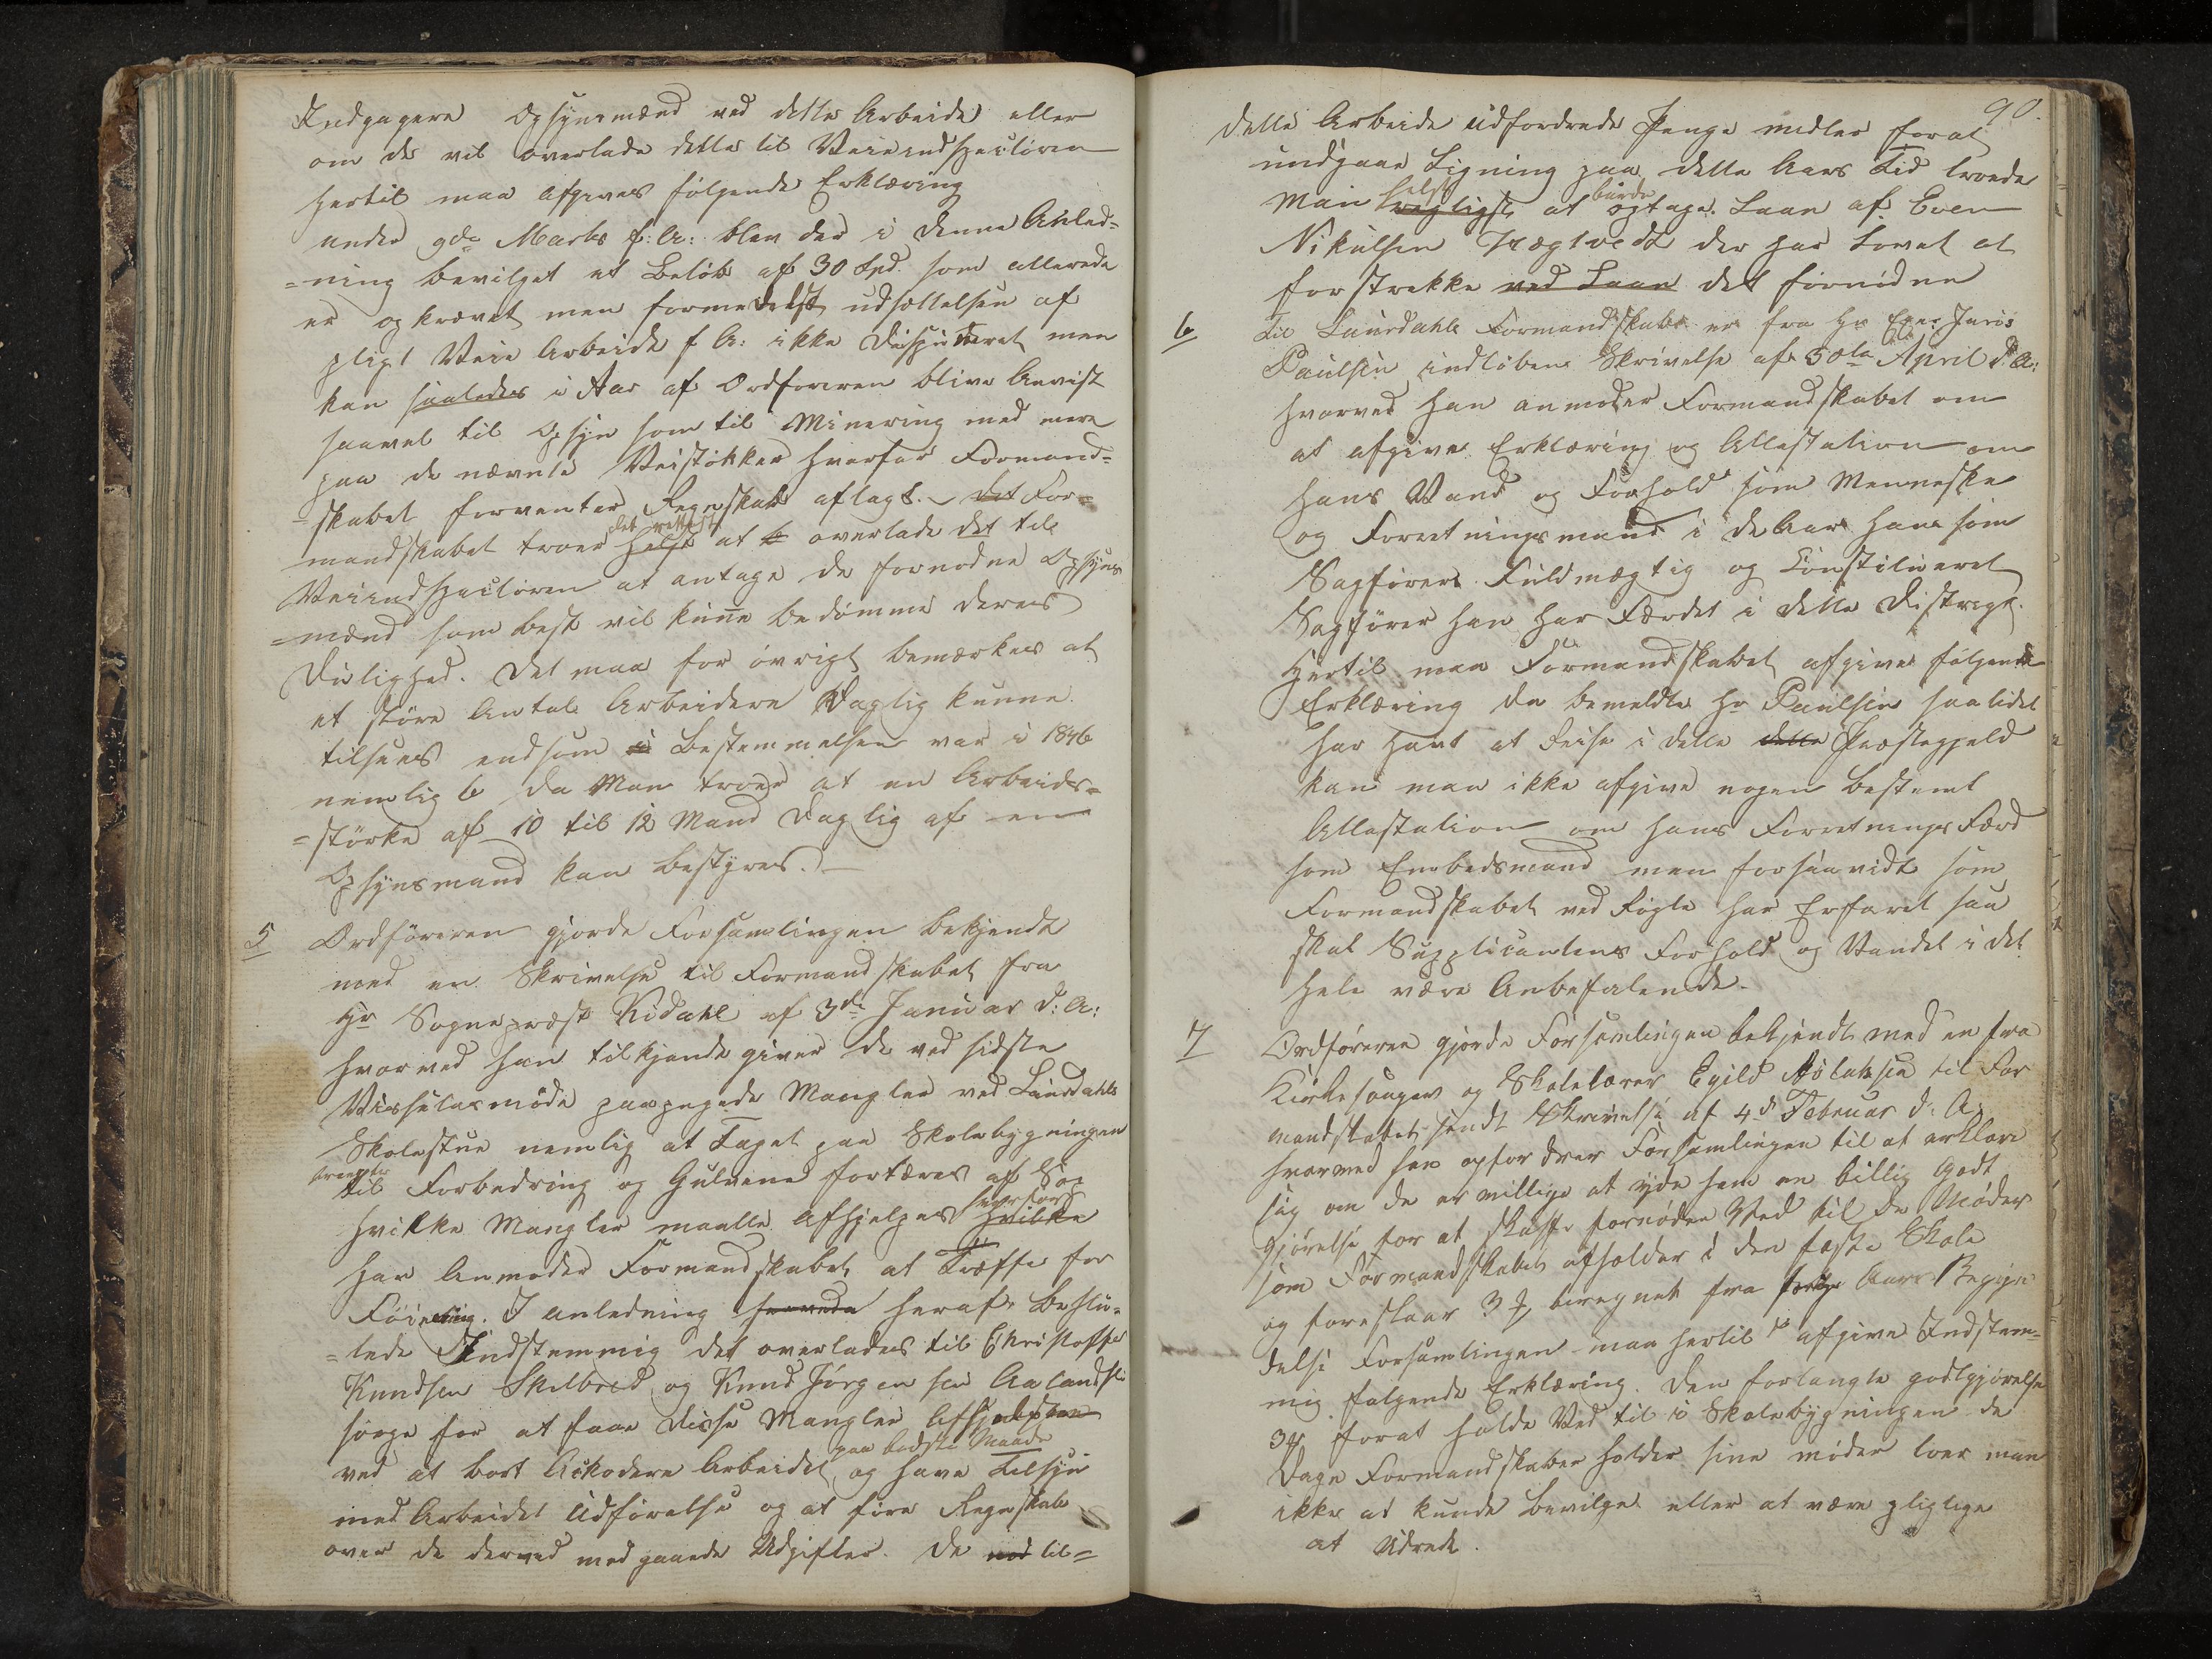 Indgagere Opsynsmænd ved dette Arbeide eller
om de vil overlade dette til Veieinspecteuren
hertil maa afgives følgende Erklæring
under 9de Marts f: A: blev der i denne Anled=
=ning bevilget et Beløb af 30 Spd. som allerede
er opkrævet men formedelst udsættelsen af
pligt Veie Arbeide f A: ikke disponeret men
kan saaledes i Aar af Ordføreren blive Anvist
saavel til Opsyn som til Minering med mere
paa de nævnte Veistøkker hvorfor Formand=
=skabet forventer Regnskab aflagt. – Det For=
det rettest
mandskabet troer helst at overlade det til
Veiinspecteuren at antage de fornødne Opsyns
=mænd som best vil kunne bedømme deres
Dulighed. Det maa for øvrigt bemærkes at
et støre Antal Arbeidere Daglig kunne
tilsiges end som i Bestemmelsen var i 1846
nemlig 6 da Man troer at en Arbeids=
=størke af 10 til 12 Mand Daglig af en
Opsynsmand kan bestyres. –
5 Ordføreren gjorde Forsamlingen bekjendt
med en Skrivelse til Formandskabet fra
Hr Sognepræst Kidahl af 3de Januar d: A:
hvorved han tilkjende giver de ved sidste
Visitasmøde paapegede Mangler ved Laurdahls
Skolestue nemlig at Taget paa Skolebygningen
trænger
til Forbedring og Gulvene fortæres af Sop
hvorfor
hvilke Mangler maatte Afhjelpes hvilke
har Anmoder Formandskabet at Træffe for
Føining. I anledning heraf beslu=
=tede Indstemmig det overlades til Christoffer
Knudsen Skilbred og Knud Jørgensen Aalandsli
sørge for at faae disse Mangler Afhjulpen
paa bedste Maade
ved at bort Ackodere Arbeidet og have Tilsyn
med Arbeidet Udførelse og at føre Regnskab
over de derved medgaaede Udgifter. De ved til=
90.
dette Arbeide udfordrede Penge midler forat
undgaae Ligning paa dette Aars Tid troede
helst burde
Man at optage Laan af Even
Nikulsen Trægtvedt der har Lovet at
forstrekke ved Laan det fornødne
6 Til Laurdahls Formandskab er fra Hr Exar Juris
Paulsen indløben Skrivelse af 30te April d: A:
hvorved han anmoder Formandskabet om
at afgive Erklæring og Attestation om
hans Vand og Forhold som Menneske
og Forretningsmand i de Aar han som
Sagførers Fuldmægtig og Constitueret
Sagfører han har Færdet i dette Distrigt.
Hertil maa Formandskabet afgive følgende
Erklæring da bemeldte Hr Paulsen saa lidet
har havt at Reise i dette dette Præstegjeld
kan man ikke afgive nogen bestemt
Attestation om hans Forretnings Færd
som Embedsmand men forsaavidt som
Formandskabet ved Rögte har Erfaret saa
skal Supplicantens Forhold og Vandel i det
hele være Anbefalende.
7 Ordføreren gjorde Forsamlingen bekjendt med en fra
Kirkesanger og Skolelærer Egild Aslaksen til For
mandskabet sendt Skrivelse af 4de Februar d: A.
hvormed han opfordrer Forsamlingen til at erklære
sig om de er villige at yde ham en billig Godt
gjørelse for at skaffe fornøden Ved til de Møder
som Formandskabet afholder i den faste Skole
og foreslaar 3 beregnet fra forige Aars Begyn
delse Forsamlingen maa hertil afgive Indstem=
mig følgende Erklæring. Den forlangte godtgjørelse
forat holde Ved til i Skolebygningen de
Dage Formandskabet holder sine møder troer man
ikke at kunde bevilge eller at være pligtige
at Udrede.